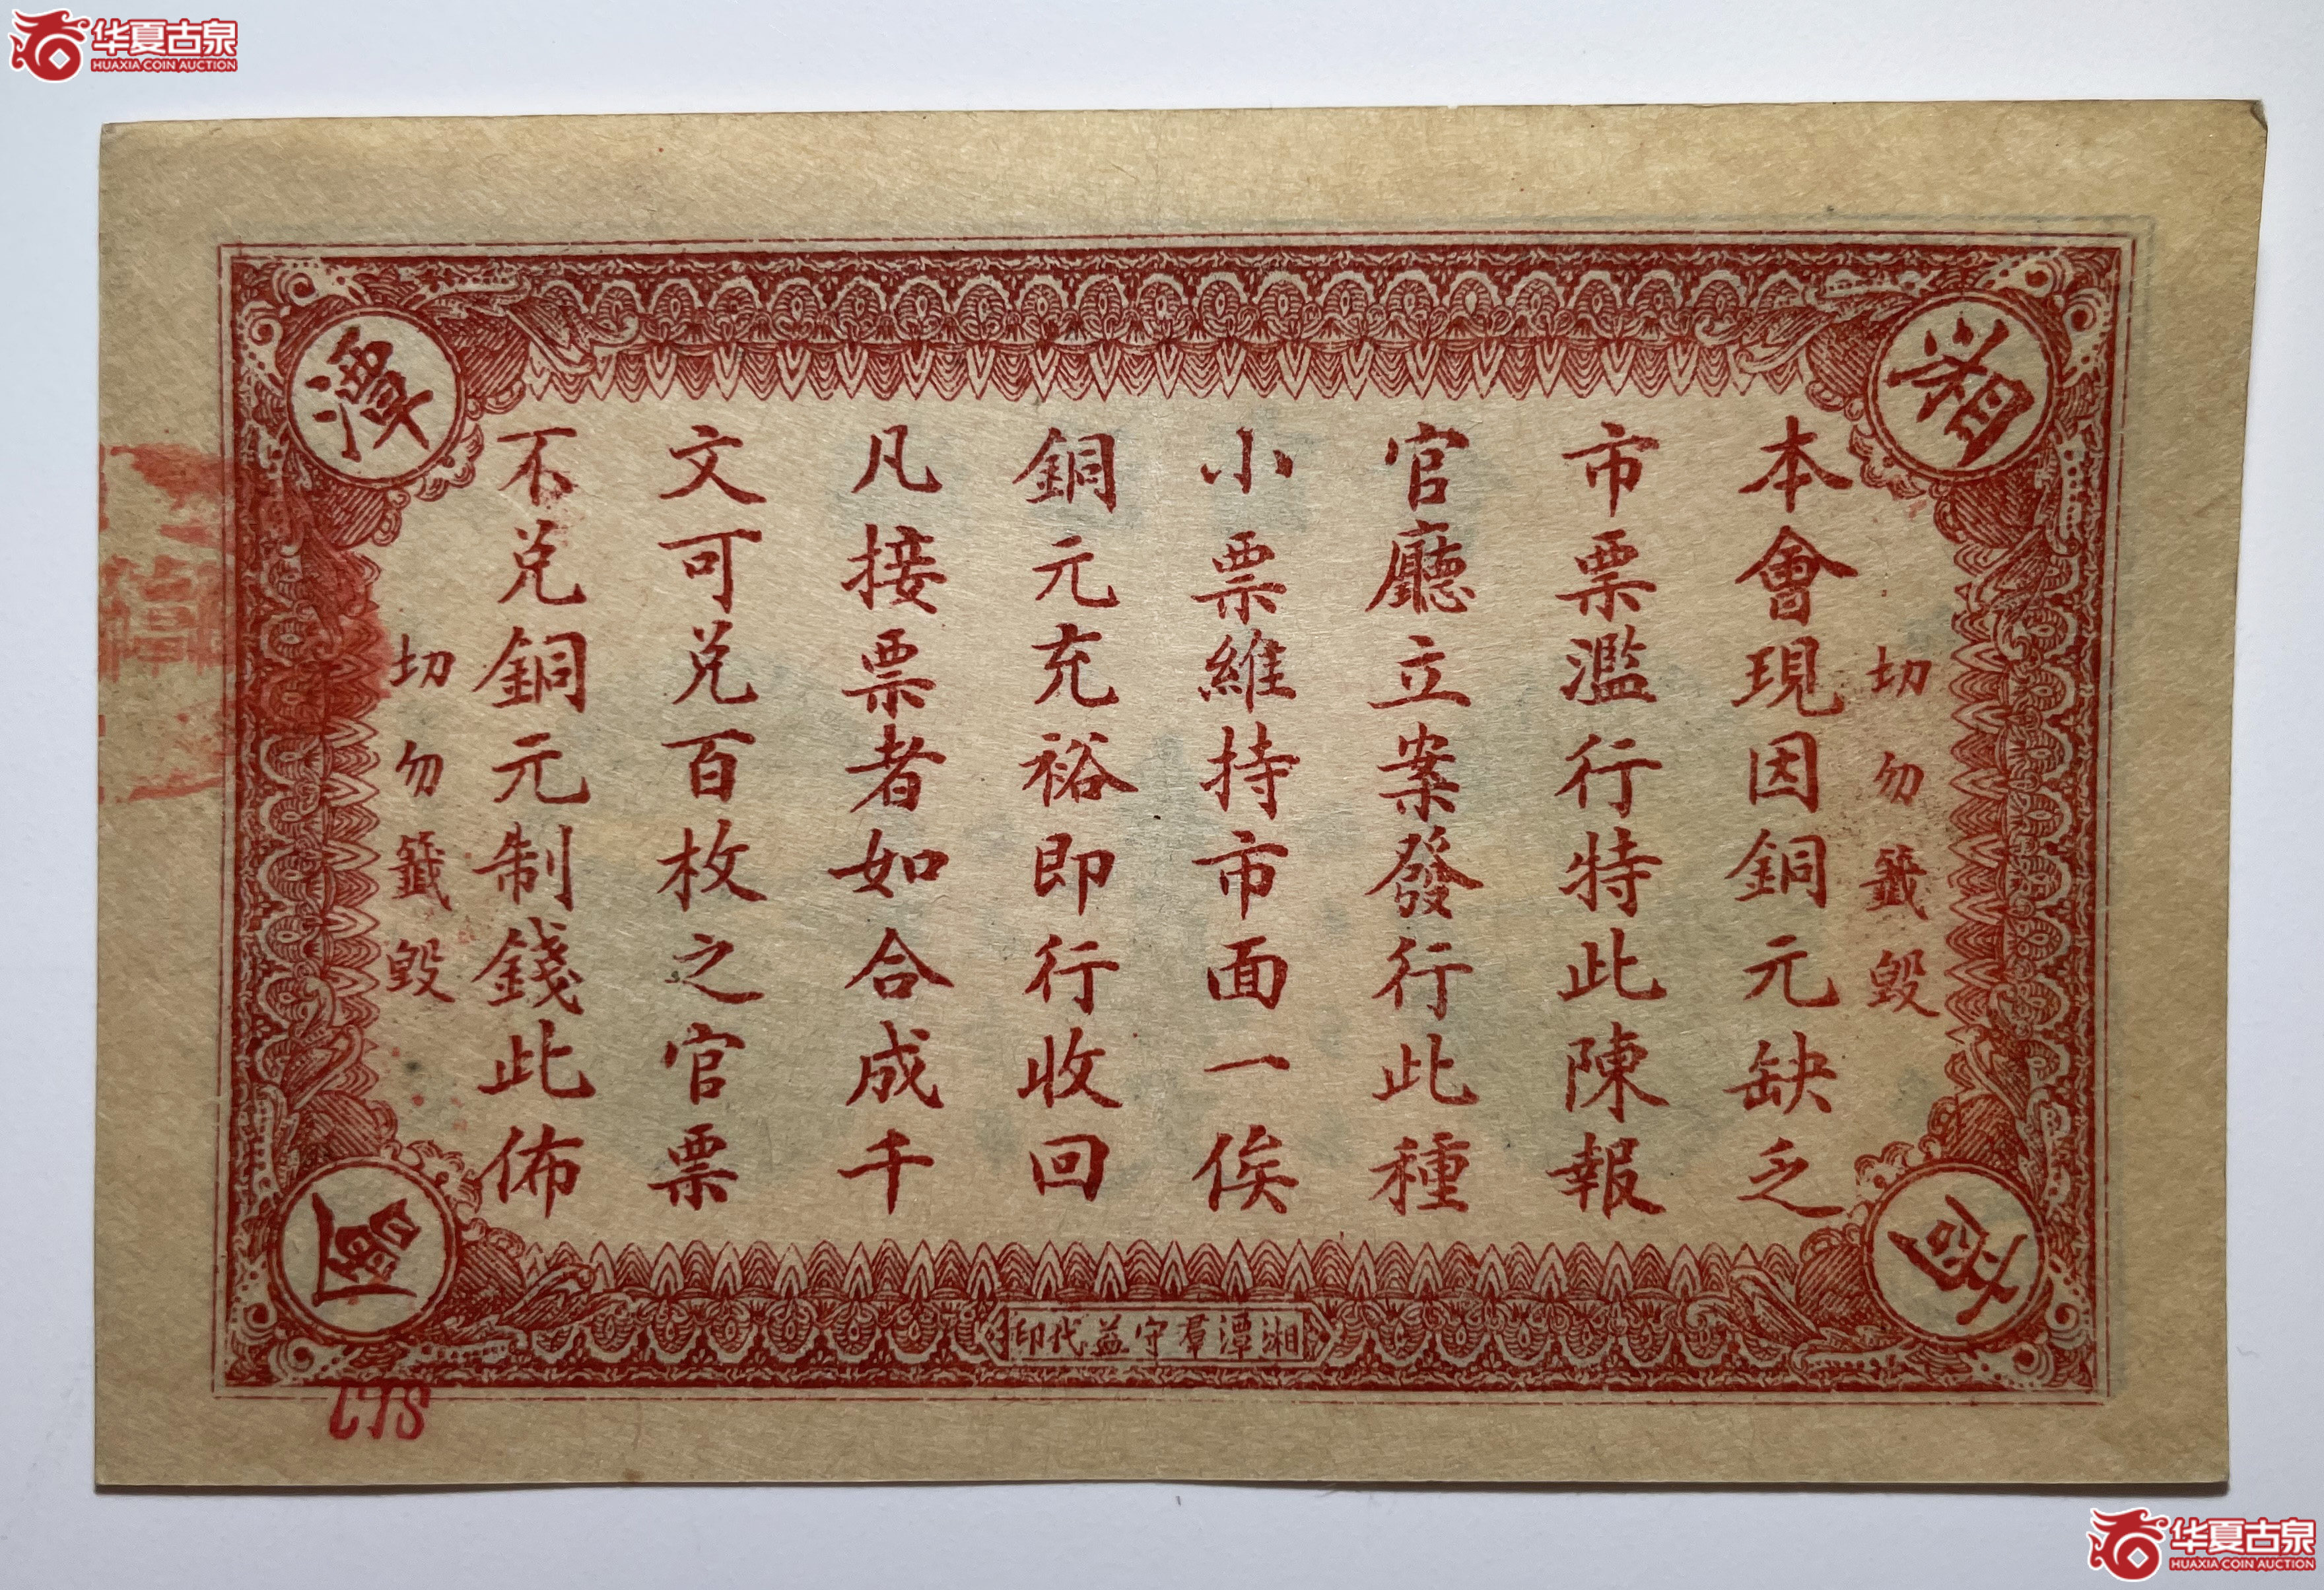 华夏古泉
HUAXIA COIN AUCTION
湘
潭
商
會
切勿籤毀
本會現因銅元缺乏
市票濫行特此陳報
官廳立案發行此種
小票維持市面一俟
銅元充裕即行收回
凡接票者如合成千
文可兌百枚之官票
不兌銅元制錢此佈
切勿籤毀
湘潭羣守益代印
华夏古泉
HUAXIA COIN AUCTION